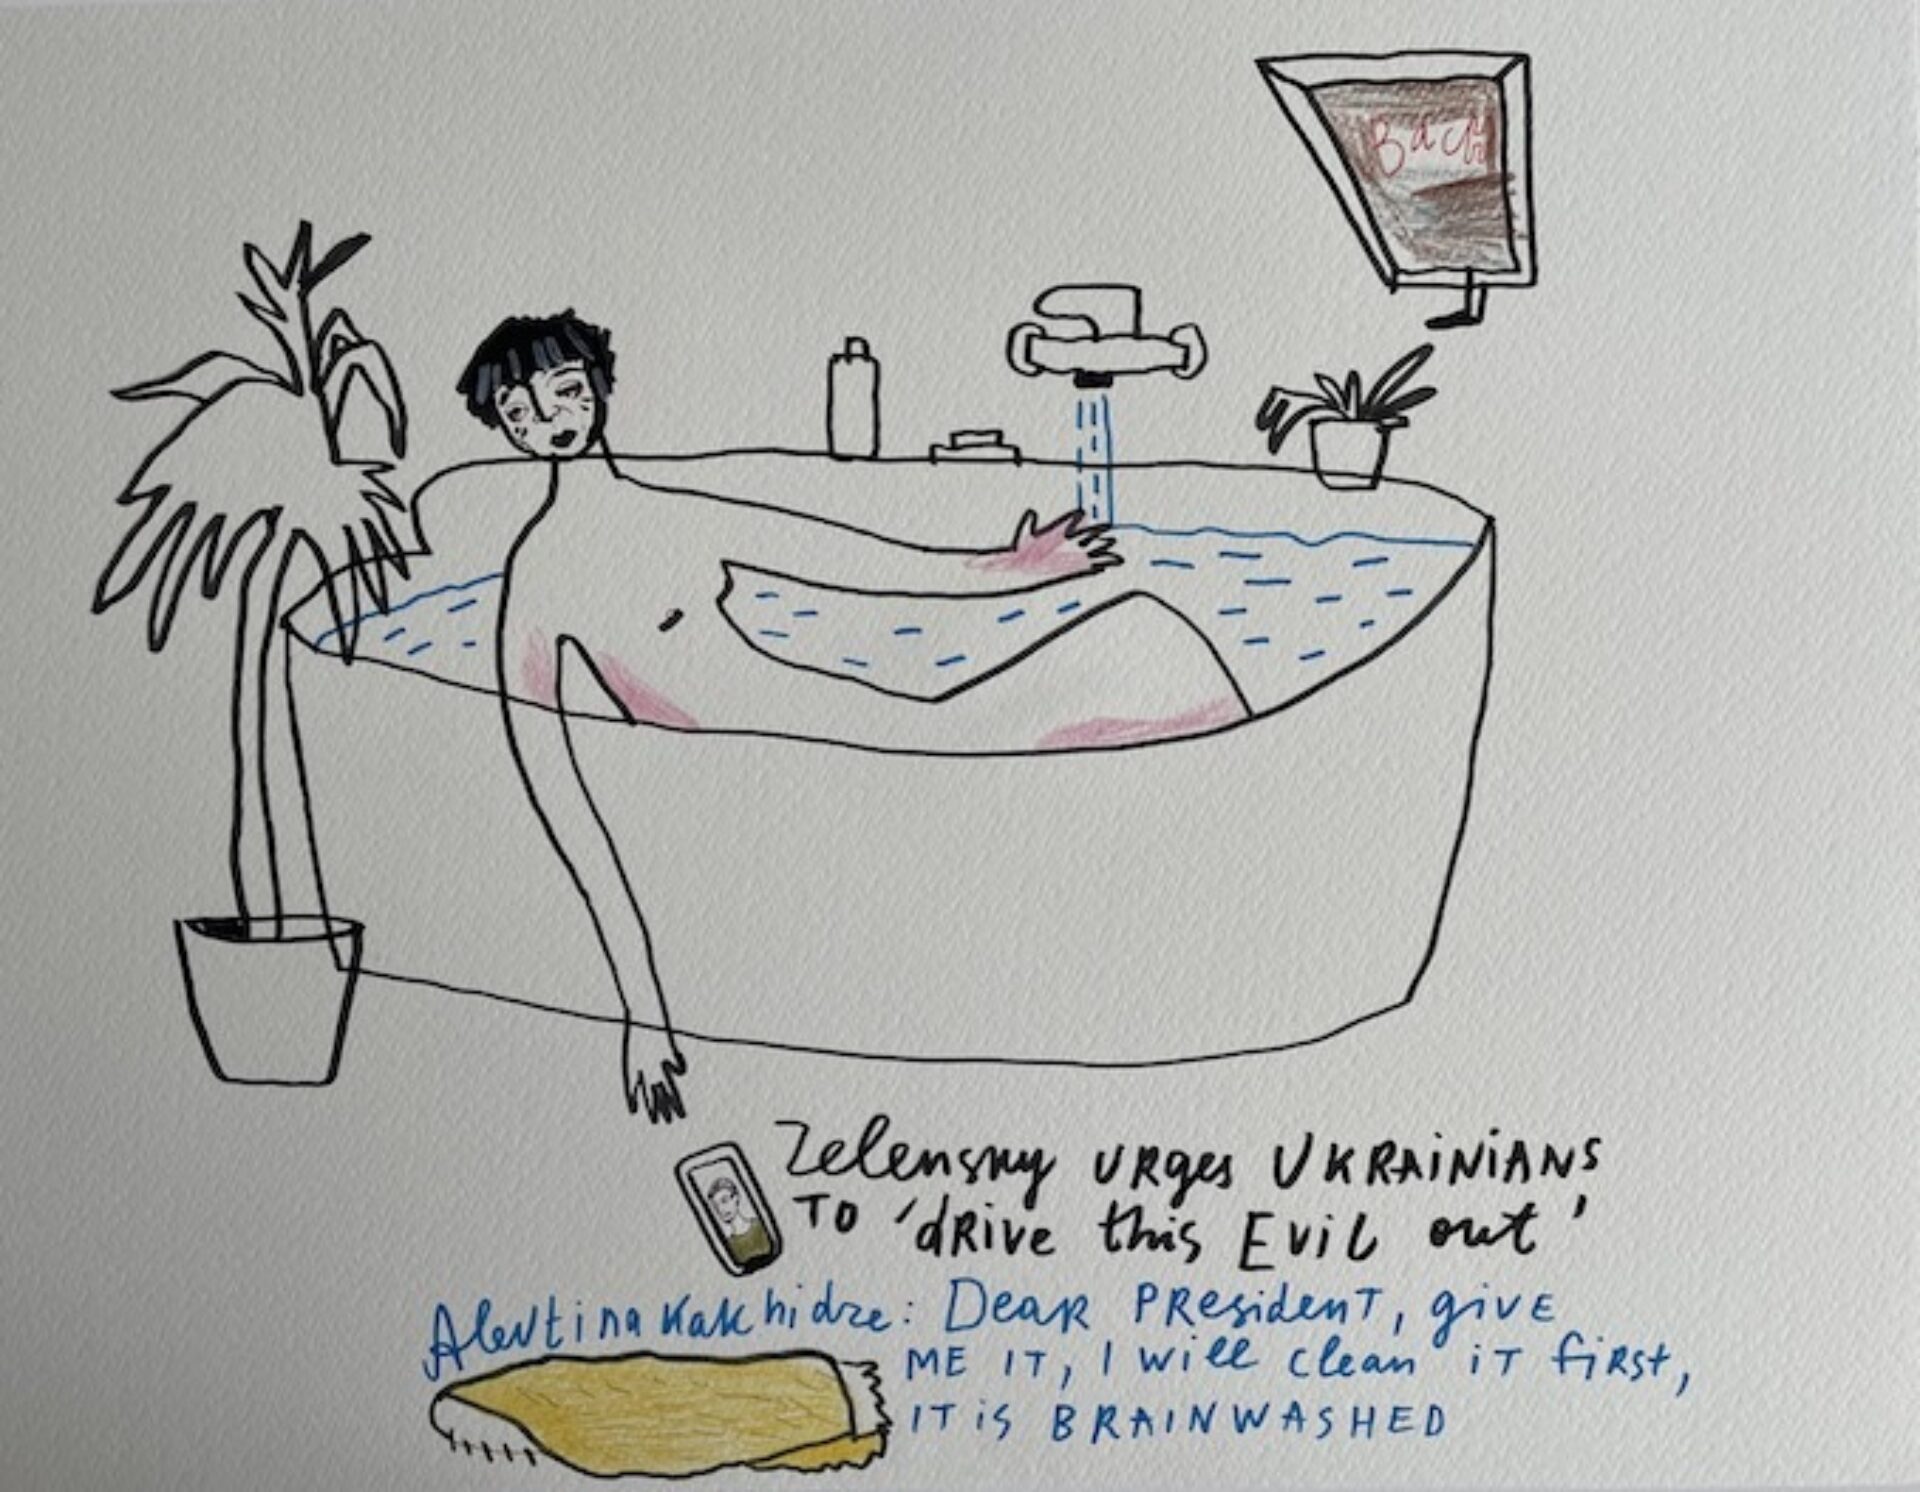 Bach
Zelensky URges UKRAiNiANS
TO 'dRive this Evil out'
Alevtina Kakhidze: Dear PResidenT, give
ME IT, I will clean iT fiRst,
IT iS BRAINWASHED